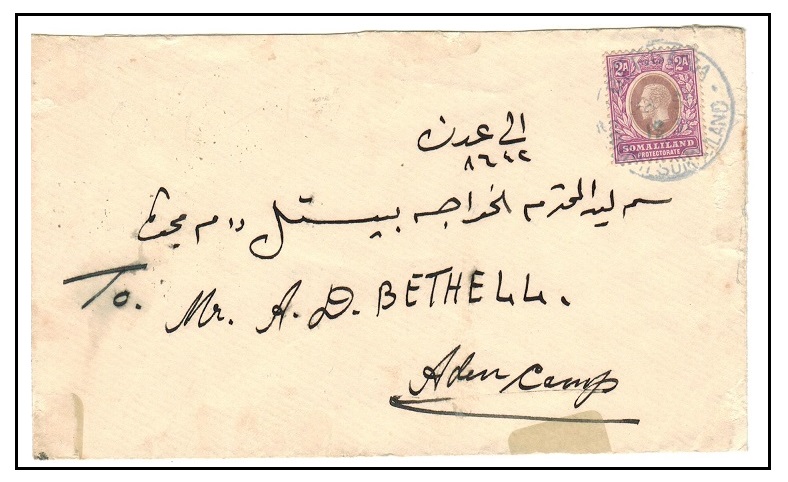 2A 2A
SOMALILAND
PROTECTORATE
SOMALILAND
الى عدن
٨٦٤٢
المحترم الخواجه بيستل دام
To.
Mr. A. D. BETHELL.
Aden Camp